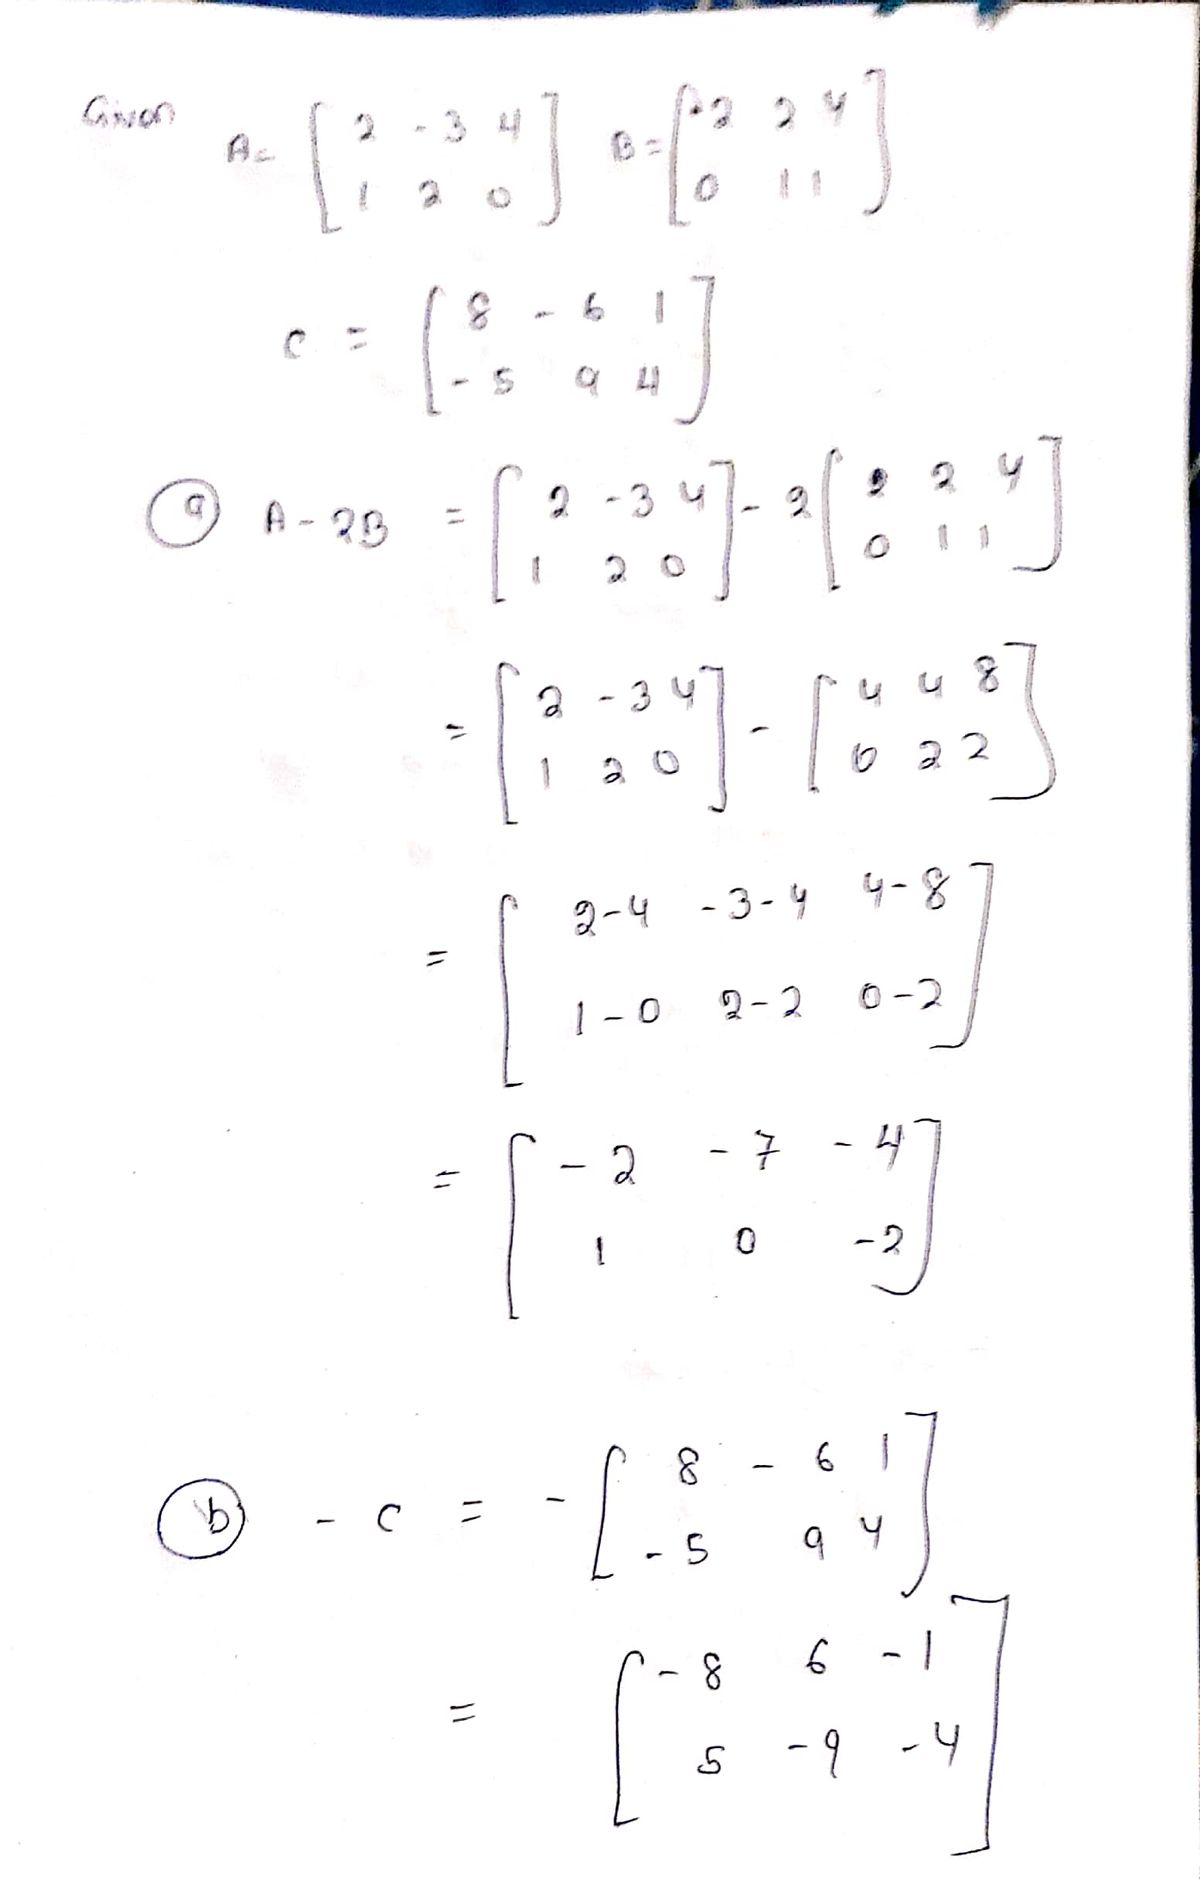 Given A = [ 2 -3 4 ] B = [ 2 2 4 ]
[ 1 2 0 ] [ 0 1 1 ]
C = [ 8 -6 1 ]
[ -5 9 4 ]
(a) A - 2B = [ 2 -3 4 ] - 2 [ 2 2 4 ]
[ 1 2 0 ] [ 0 1 1 ]
= [ 2 -3 4 ] - [ 4 4 8 ]
[ 1 2 0 ] [ 0 2 2 ]
= [ 2-4 -3-4 4-8 ]
[ 1-0 2-2 0-2 ]
= [ -2 -7 -4 ]
[ 1 0 -2 ]
(b) - C = - [ 8 -6 1 ]
[ -5 9 4 ]
= [ -8 6 -1 ]
[ 5 -9 -4 ]